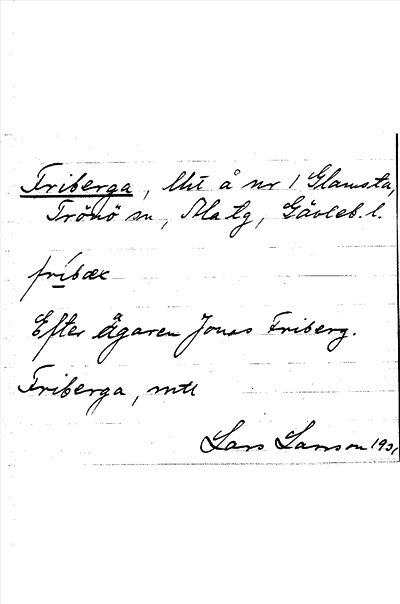 Friberga, lht å nr 1 Glamsta,
Trönö sn, Ala tg, Gävleb. l.
fríbæ
Efter ägaren Jonas Friberg.
Friberga, mtl
Lars Larsson 193